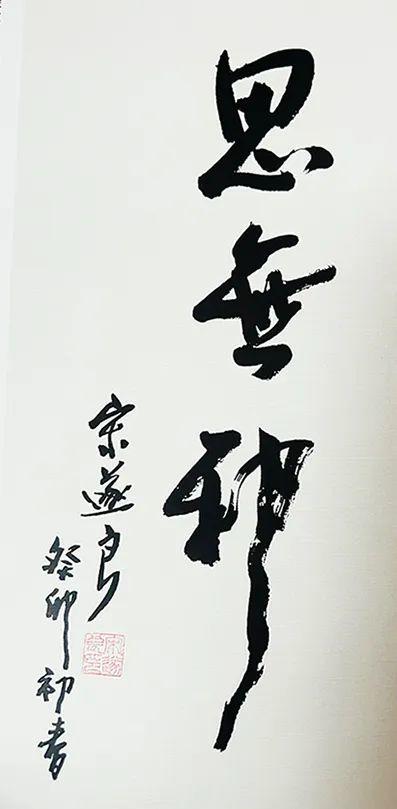 思無邪
宗遂良
癸卯初春